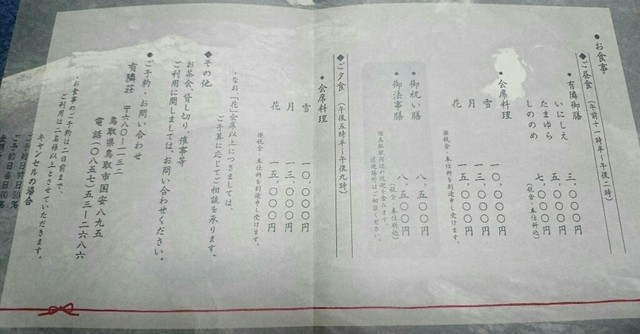 ●お食事
◆ご昼食（午前十一時半～午後二時）
●有隣御膳
いにしえ 三、〇〇〇円
たまゆら 五、〇〇〇円
しののめ 七、〇〇〇円
（税金・奉仕料込）
●会席料理
雪 一〇、〇〇〇円
月 一三、〇〇〇円
花 一五、〇〇〇円
※税金・奉仕料を別途申し受けます。
●御祝い膳 八、五〇〇円
●御法事膳 八、五〇〇円
（税金・奉仕料込）
◆ご夕食（午後五時半～午後九時）
●会席料理
雪 一〇、〇〇〇円
月 一三、〇〇〇円
花 一五、〇〇〇円
※税金・奉仕料を別途申し受けます。
・なお、「花」会席以上につきましては、
ご予算に応じてご相談を承ります。
◆その他
お茶会、貸し切り、催事等
ご利用に関しましては、お問い合わせください。
●ご予約・お問い合わせ
有隣荘 〒六八〇―一一三二
鳥取県鳥取市国安八九五
電話（〇八五七）五三―二六八六
・お食事のご予約は二日前まで、
ご利用は二名様以上とさせていただきます。
キャンセルの場合